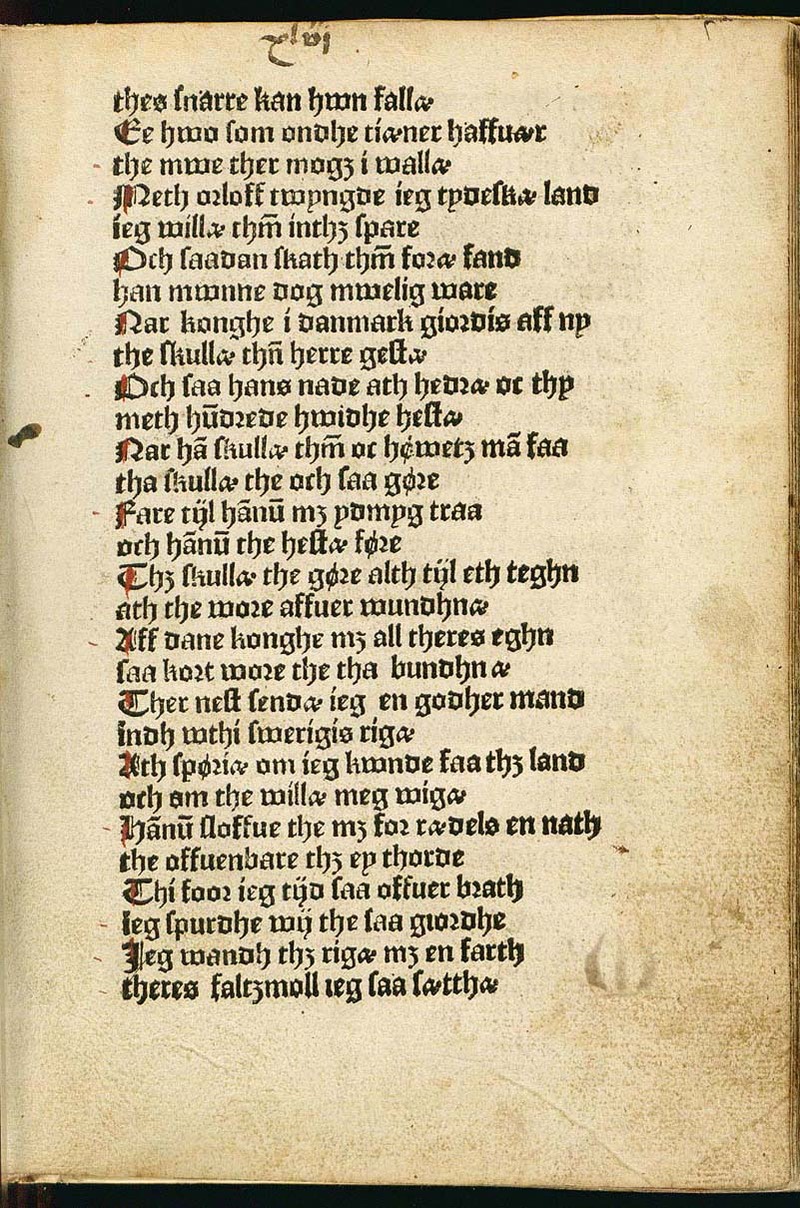 xlvi
thes snarre kan hwn fallæ
Ee hwo som ondhe tiæner haffuær
the mwe ther mogꝫ i wallæ
Meth orloff twyngde ieg tydeskæ land
ieg willæ thm̄ inthꝫ spare
Och saadan skath thm̄ foræ fand
han mwnne dog mwelig ware
Nar konghe i danmark giordis aff ny
the skullæ thn̄ herre gestæ
Och saa hans nade ath hedræ oc thy
meth hūdrede hwidhe hestæ
Nar hā skullæ thm̄ oc høwetꝫ mā faa
tha skullæ the och saa gøre
Fare tijl hānū mꝫ ydmyg traa
och hānū the hestæ føre
Thꝫ skullæ the gøre alth tijl eth teghn
ath the wore affuer wundhnæ
Aff dane konghe mꝫ all theres eghn
saa kort wore the tha bundhnæ
Ther nest sendæ ieg en godher mand
indh wthi swerigis rigæ
Ath spøriæ om ieg kwnde faa thꝫ land
och om the willæ meg wigæ
Hānū sloffue the mꝫ for rædels en nath
the offuenbare thꝫ ey thorde
Thi foor ieg tijd saa offuer brath
ieg spurdhe wij the saa giordhe
Jeg wandh thꝫ rigæ mꝫ en farth
theres faltꝫmoll ieg saa sætthæ